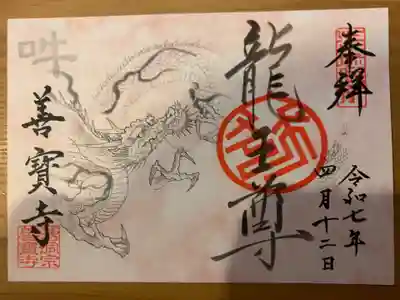 奉拜
令和七年
四月十二日
龍王尊
善寳寺